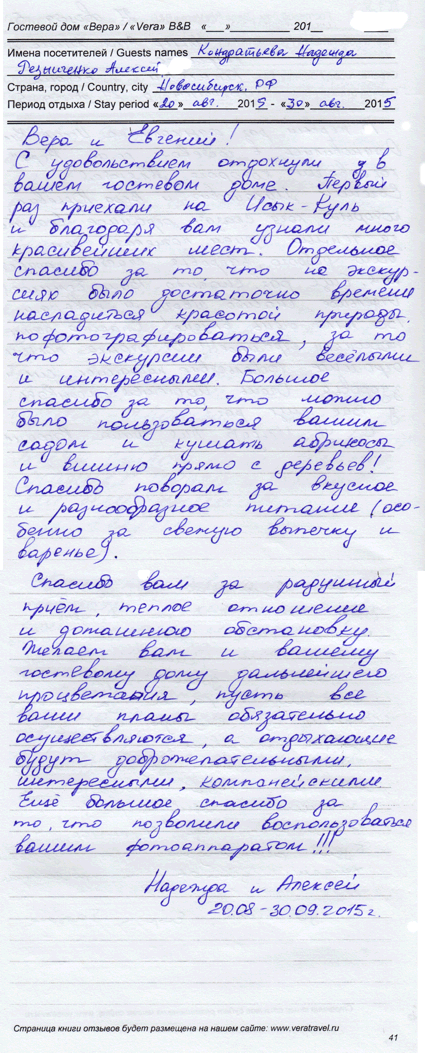 Гостевой дом «Вера» / «Vera» B&B «___»____________ 201__
Имена посетителей / Guests names Кондратьева Надежда
Резниченко Алексей
Страна, город / Country, city г.Новосибирск, РФ
Период отдыха / Stay period «20» авг. 2015 - «30» авг. 2015
Вера и Евгений!
С удовольствием отдохнули в
вашем гостевом доме. Первый
раз приехали на Исык-Куль
и благодаря вам узнали много
красивейших мест. Отдельное
спасибо за то, что на экскур-
сиях было достаточно времени
насладиться красотой природы,
пофотографироваться, за то
что экскурсии были весёлыми
и интересными. Большое
спасибо за то, что можно
было пользоваться вашим
садом и кушать абрикосы
и вишню прямо с деревьев!
Спасибо поворам за вкусное
и разнообразное питание (осо-
бенно за свежую выпечку и
варенье).
Спасибо вам за радушный
приём, теплое отношение
и домашнюю обстановку.
Желаем вам и вашему
гостевому дому дальнейшего
процветания, пусть все
ваши планы обязательно
осуществляются, а отдыхающие
будут доброжелательными,
интересными, компанейскими.
Ещё большое спасибо за
то, что позволили воспользоваться
вашим фотоаппаратом!!!
Надежда и Алексей
20.08-30.09.2015г.
Страница книги отзывов будет размещена на нашем сайте: www.veratravel.ru
41